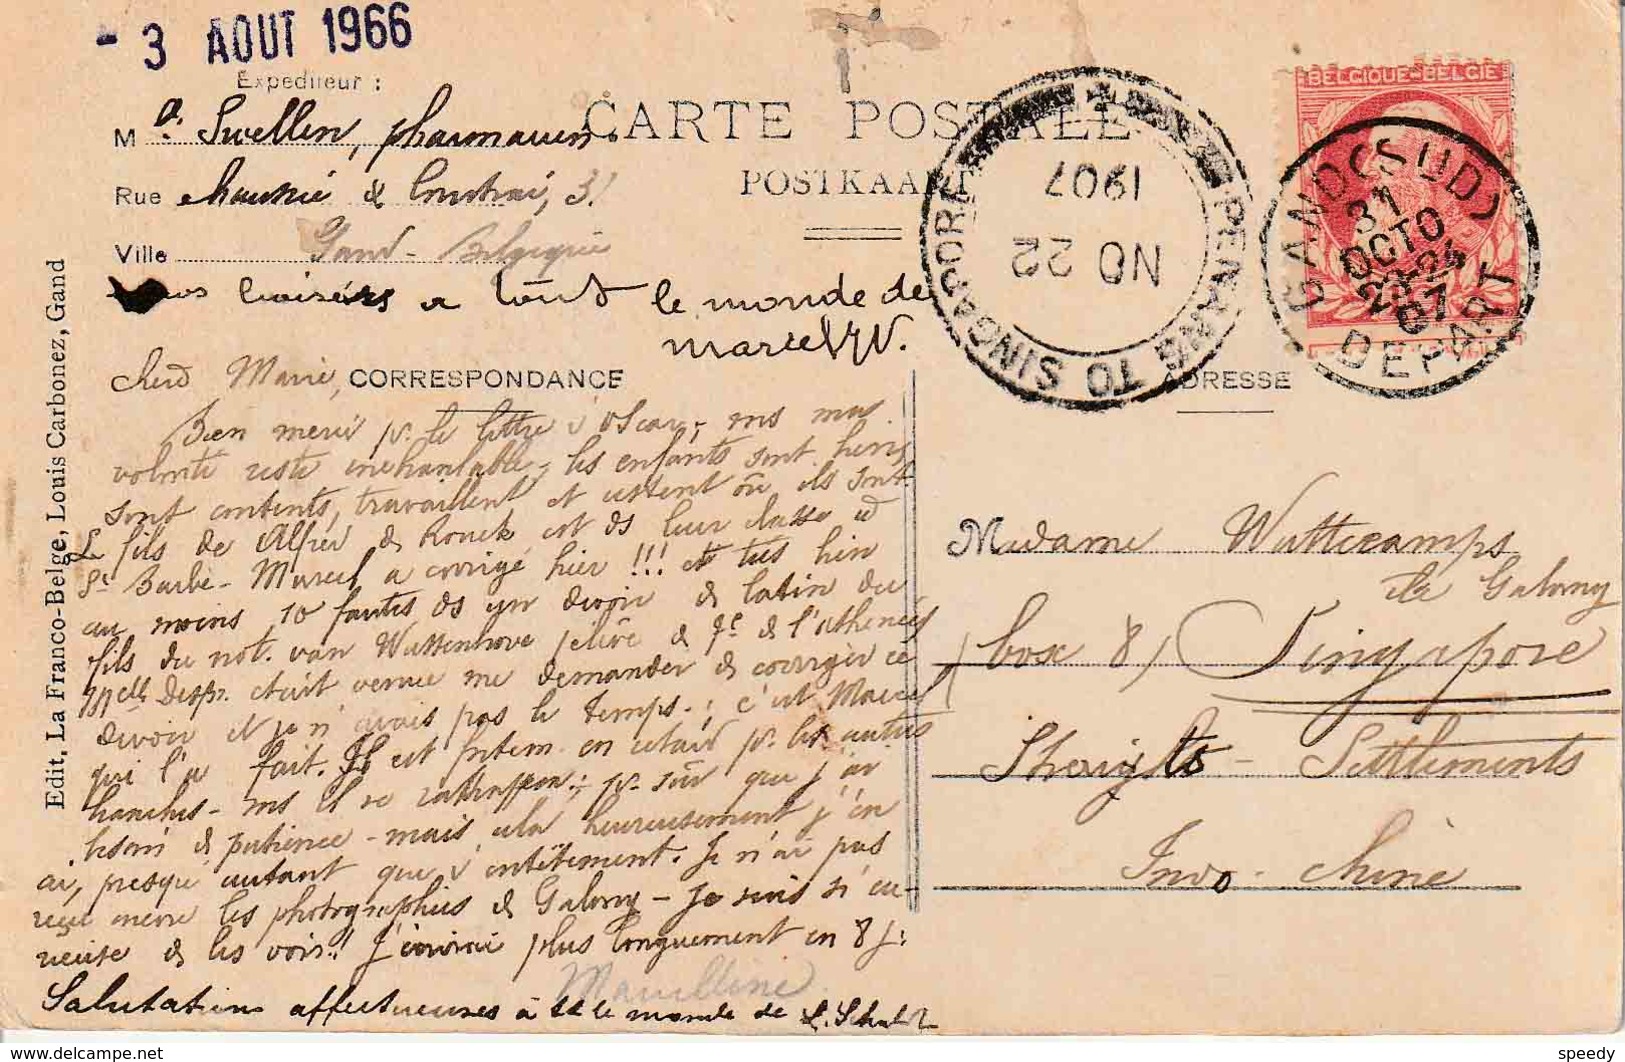 - 3 AOUT 1966
Expediteur :
M Swellen, pharmacien
Rue chaussée de Courtrai, 31
Ville Gand - Belgique
CARTE POSTALE
POSTKAART
BELGIQUE-BELGIË
GAND (SUD)
31
OCTO
07
DEPART
PENANG TO SINGAPORE
1907
NO 22
baisers a tout le monde de
Marcel
CORRESPONDANCE
ADRESSE
Marie,
Bien merci pr. la lettre d'Oscar, ms ma
volonté reste inébranlable, les enfants sont
sont contents, travaillent et restent où ils sont.
Le fils de Alfred de Konck est ds leur classe à
St Barbe - Marcel a corrigé hier !!! et
au moins 10 fautes ds un devoir de latin du
fils du not. van Wattenhove, élève de 7e de l'athénée
Melle était venue me demander de corriger ce
devoir et je n'avais pas le temps : c'est Marcel
qui l'a fait. Il est en retard pr. les autres
branches - ms il se pr. sûr que j'ai
besoin de patience - mais cela heureusement j'en
ai, presque autant que d'entêtement. Je n'ai pas
reçu les photographies de Galony - Je suis si cu-
rieuse de les voir!! J'écrirai plus longuement en 8 j.
Marcelline
Salutations affectueuses à tt le monde de
Madame Wattecamps
de Galony
(box 8) Singapore
Straigts - Settlements
Indo-chine
Edit. La Franco-Belge, Louis Carbonez, Gand
delcampe.net
speedy